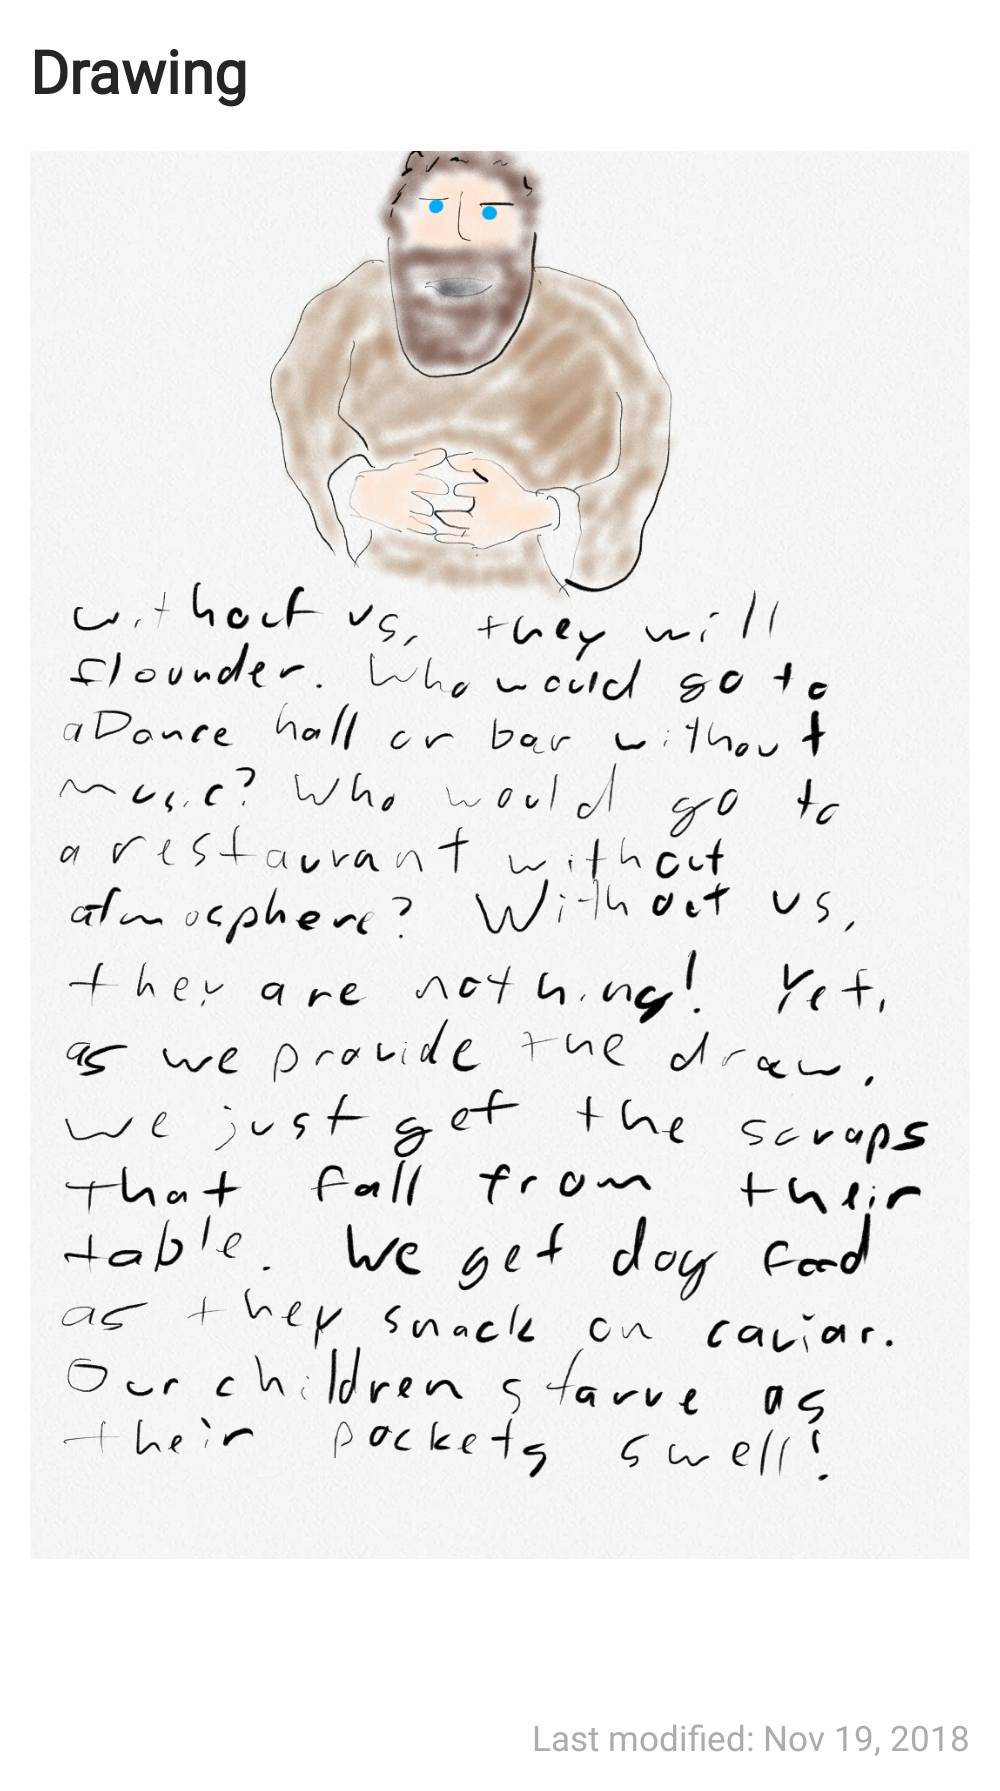 Drawing
without us, they will
flounder. Who would go to
a Dance hall or bar without
music? Who would go to
a restaurant without
atmosphere? Without us,
they are nothing! Yet,
as we provide the draw,
we just get the scraps
that fall from their
table. We get dog food
as they snack on caviar.
Our children starve as
their pockets swell!
Last modified: Nov 19, 2018